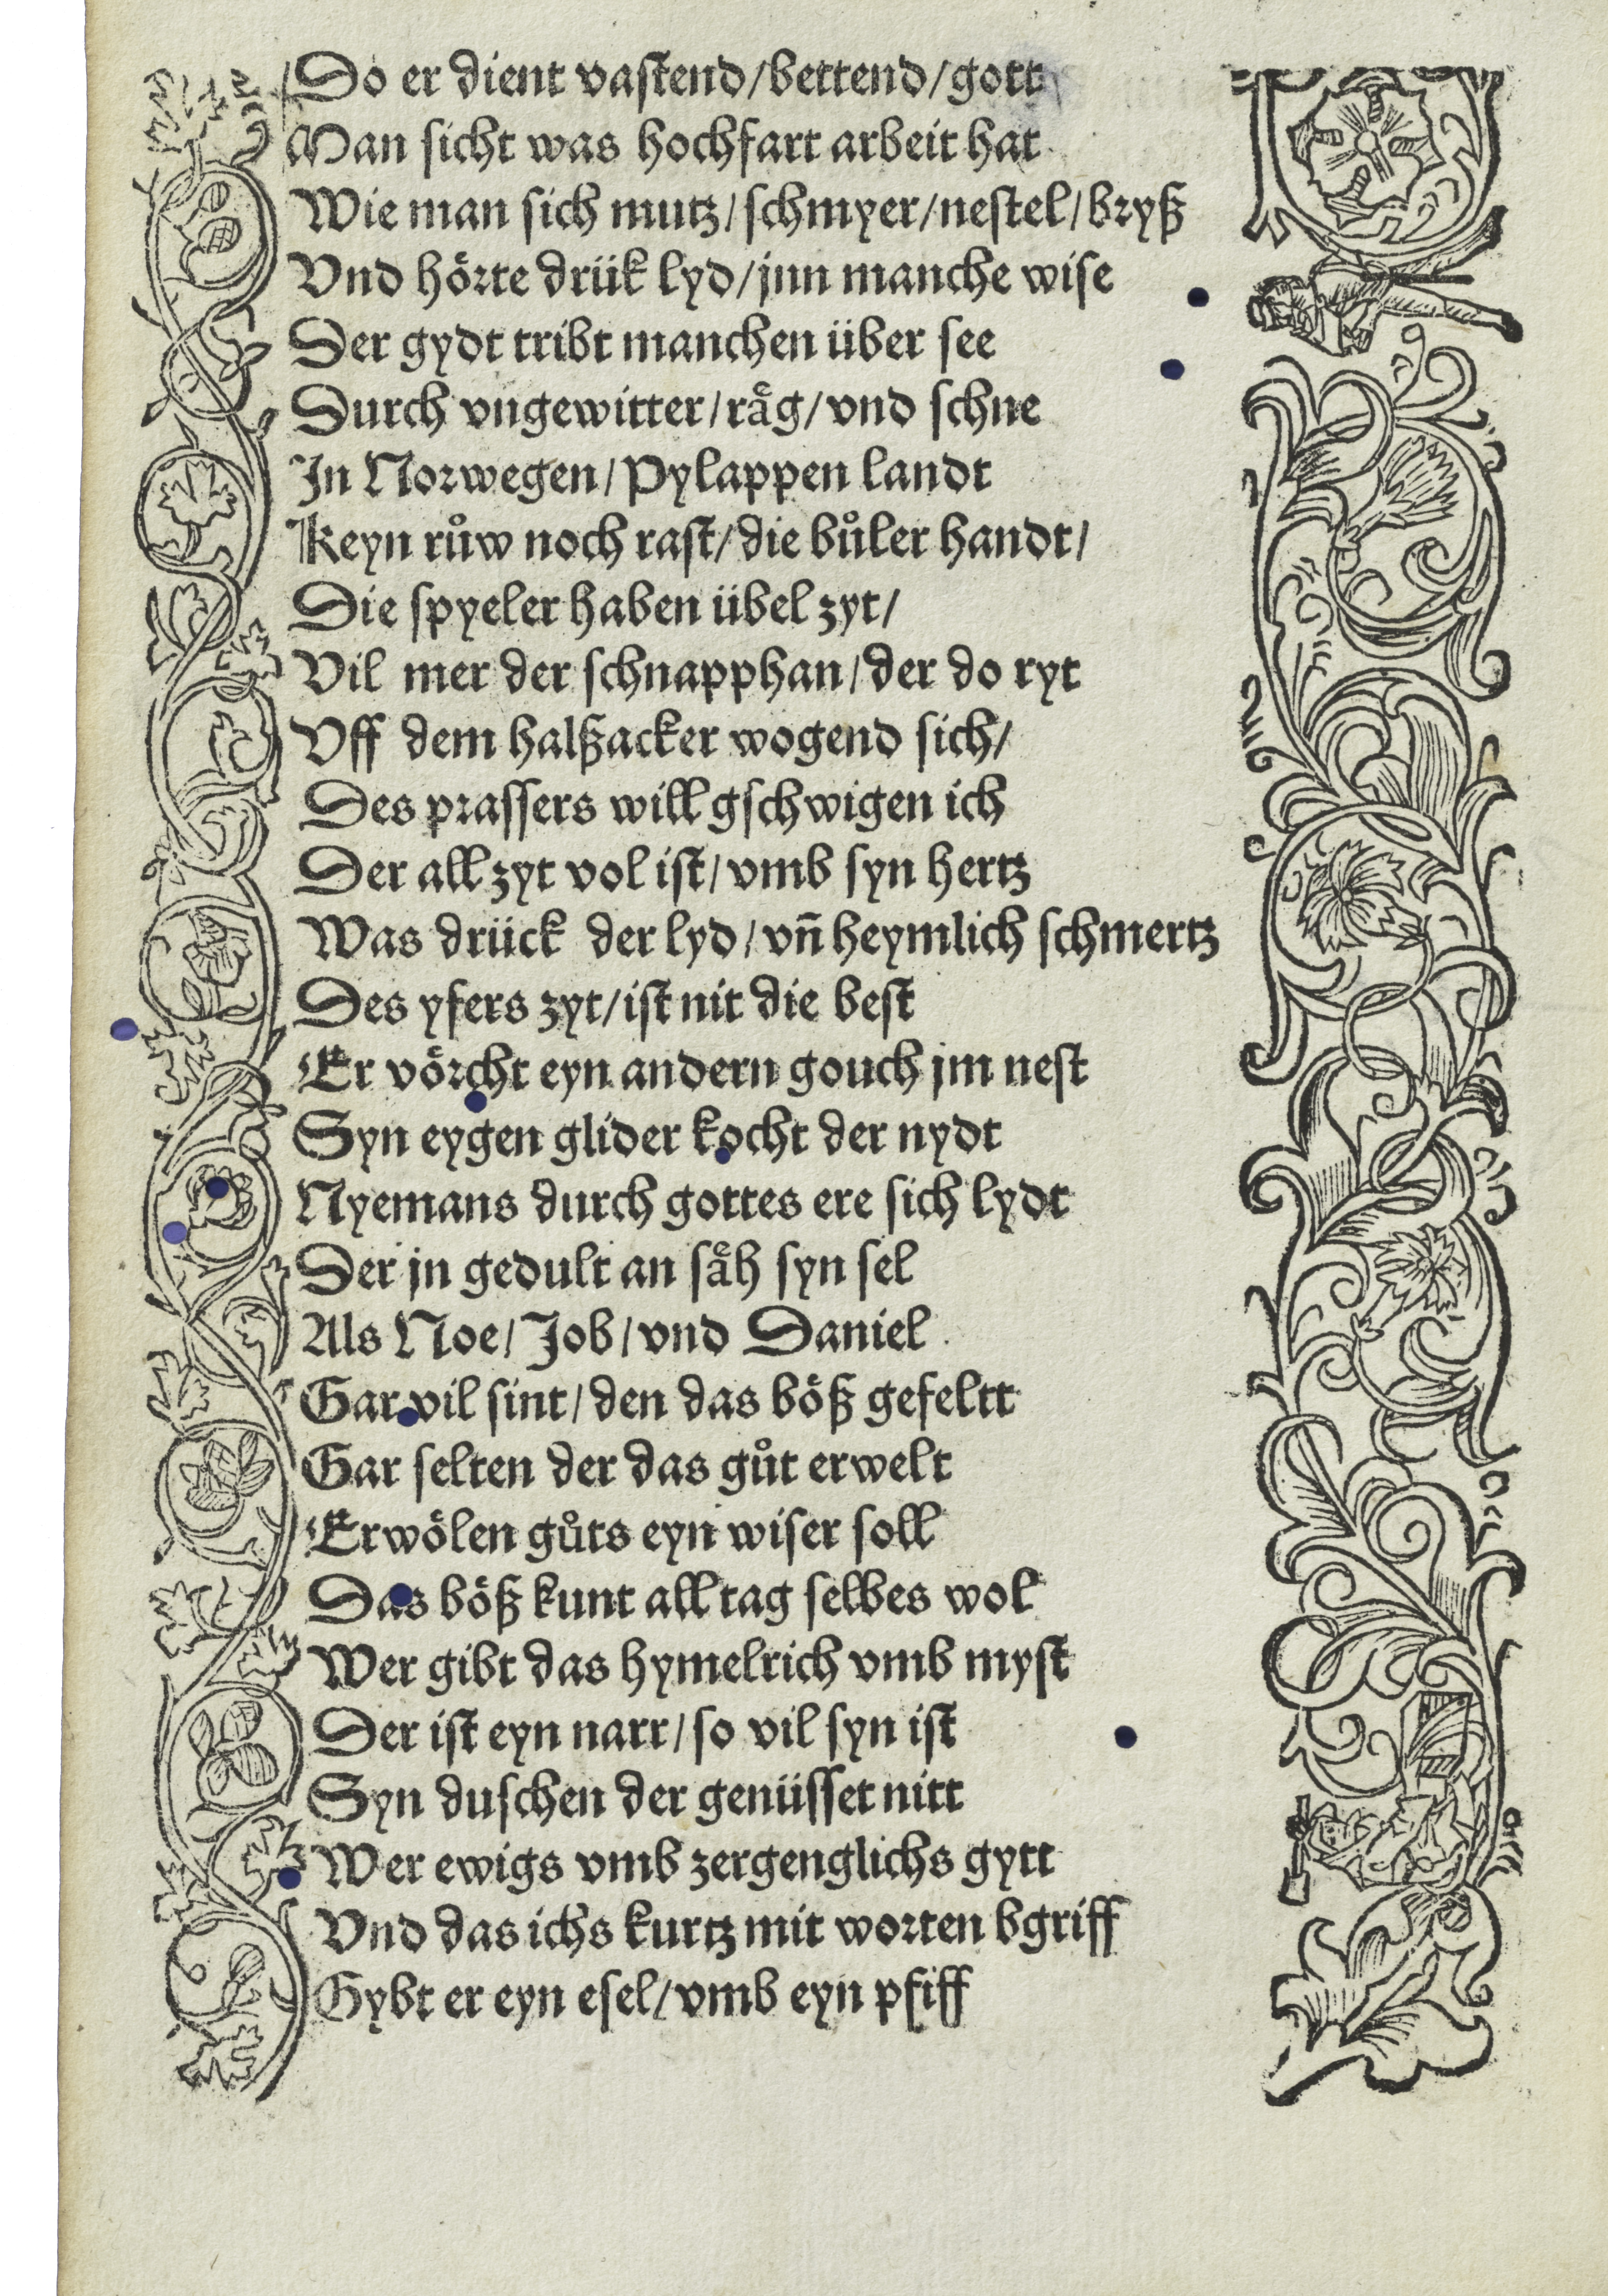 Do er dient vastend/bettend/gott
Man sicht was hochfart arbeit hat
Wie man sich mutz/schmyer/nestel/bryß
Vnd hoͤrte druͤk lyd/jnn manche wise
Der gydt tribt manchen über see
Durch vngewitter/raͤg/vnd schne
In Norwegen/Pylappen landt
Keyn ruͦw noch rast/die buͦler handt/
Die spyeler haben übel zyt/
Vil mer der schnapphan/der do ryt
Vff dem halßacker wogend sich/
Des prassers will gschwigen ich
Der all zyt vol ist/vmb syn hertz
Was drück der lyd/vn̄ heymlich schmertz
Des yfers zyt/ist nit die best
Er voͤrcht eyn andern gouch jm nest
Syn eygen glider kocht der nydt
Nyemans durch gottes ere sich lydt
Der jn gedult an saͤh syn sel
Als Noe/Job/vnd Daniel.
Gar vil sint/den das boͤß gefeltt
Gar selten der das guͦt erwelt
Erwoͤlen guͦts eyn wiser soll
Das boͤß kunt all tag selbes wol
Wer gibt das hymelrich vmb myst
Der ist eyn narr/so vil syn ist
Syn duschen der genüsset nitt
Wer ewigs vmb zergenglichs gytt
Vnd das ichs kurtz mit worten bgriff
Gybt er eyn esel/vmb eyn pfiff